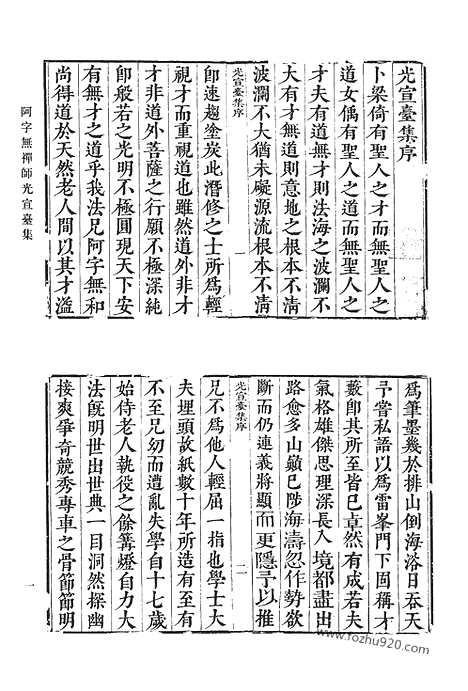 光宣臺集序
卜梁倚有聖人之才而無聖人之
道女偊有聖人之道而無聖人之
才夫有道無才則法海之波瀾不
大有才無道則意地之根本不清
波瀾不大猶未礙源流根本不清
光宣臺集序 一
卽速趨塗炭此潛修之士所爲輕
視才而重視道也雖然道外非才
才非道外菩薩之行願不極深純
卽般若之光明不極圓現天下安
有無才之道乎我法兄阿字無和
尚得道於天然老人間以其才溢
爲筆墨幾於排山倒海浴日吞天
予嘗私語以爲雷峯門下固稱才
藪卽其所至皆已卓然有成若夫
氣格雄傑思理深長入境都盡出
路愈多山巔已陟海濤忽作勢欲
斷而仍連義將顯而更隱予以推
光宣臺集序 二
兄不爲他人輕屈一指也學士大
夫埋頭故紙數十年所造有至有
不至兄幼而遭亂失學自十七歲
始侍老人執役之餘篝燈自力大
法旣明世出世典一目洞然探幽
接爽爭奇競秀專車之骨節節明
阿字無禪師光宣臺集
一
www.fozhu920.com